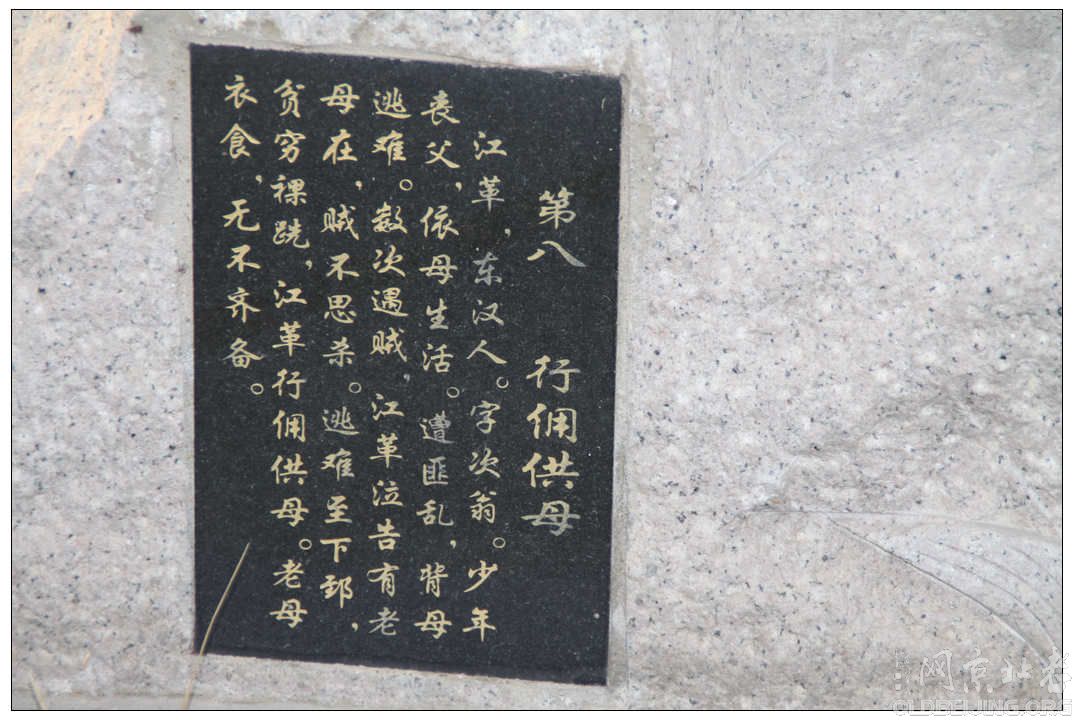 第八 行佣供母
江革，东汉人。字次翁。少年
丧父，依母生活。遭匪乱，背母
逃难。数次遇贼，江革泣告有老
母在，贼不思杀。逃难至下邳，
贫穷裸跣，江革行佣供母。老母
衣食，无不齐备。
网京北老
OLDBEIJING.ORG